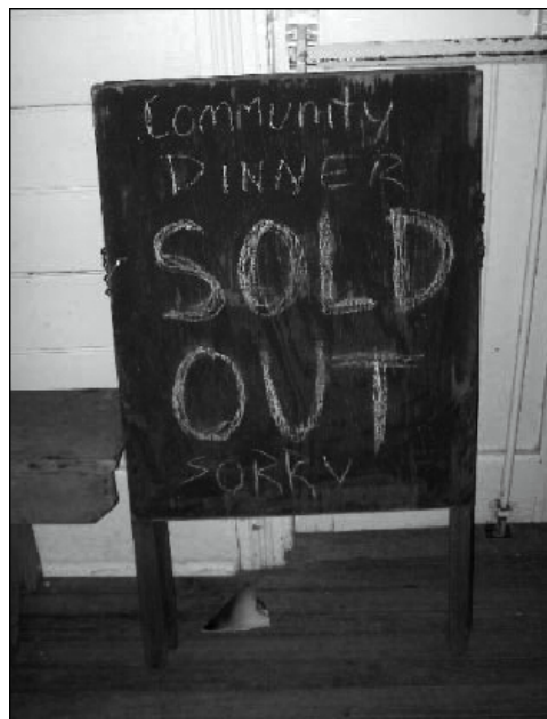 Community
DINNER
SOLD
OUT
SORRY